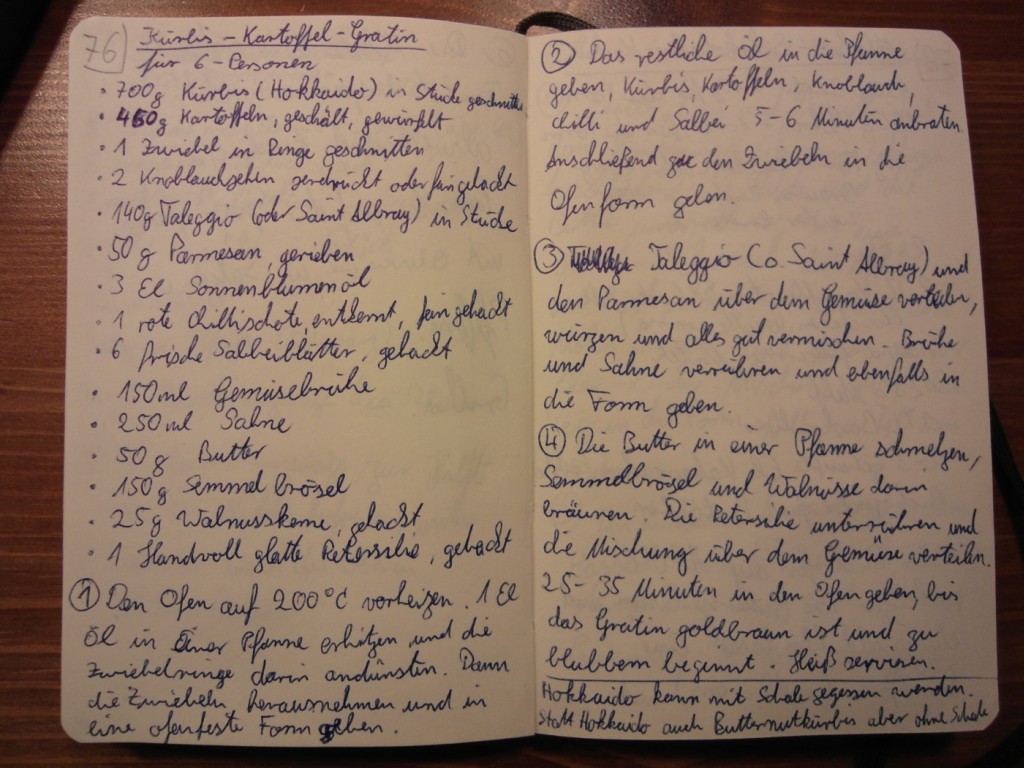 76
Kürbis-Kartoffel-Gratin
für 6-Personen
• 700g Kürbis (Hokkaido) in Stücke geschnitten
• 450g Kartoffeln, geschält, gewürfelt
• 1 Zwiebel in Ringe geschnitten
• 2 Knoblauchzehen zerdrückt oder fein gehackt
• 140g Taleggio (oder Saint Albray) in Stücke
• 50g Parmesan, gerieben
• 3 El Sonnenblumenöl
• 1 rote Chillischote, entkernt, fein gehackt
• 6 frische Salbeiblätter, gehackt
• 150ml Gemüsebrühe
• 250ml Sahne
• 50g Butter
• 150g Semmelbrösel
• 25g Walnusskerne, gehackt
• 1 Handvoll glatte Petersilie, gehackt
① Den Ofen auf 200°C vorheizen. 1 El
Öl in einer Pfanne erhitzen und die
Zwiebelringe darin andünsten. Dann
die Zwiebeln herausnehmen und in
eine ofenfeste Form geben.
② Das restliche Öl in die Pfanne
geben, Kürbis, Kartoffeln, Knoblauch,
Chilli und Salbei 5-6 Minuten anbraten.
Anschließend zu den Zwiebeln in die
Ofenform geben.
③ Taleggio (o. Saint Albray) und
den Parmesan über dem Gemüse verteilen,
würzen und alles gut vermischen. Brühe
und Sahne verrühren und ebenfalls in
die Form geben.
④ Die Butter in einer Pfanne schmelzen,
Semmelbrösel und Walnüsse darin
bräunen. Die Petersilie unterrühren und
die Mischung über dem Gemüse verteilen.
25-35 Minuten in den Ofen geben, bis
das Gratin goldbraun ist und zu
blubbern beginnt. Heiß servieren.
Hokkaido kann mit Schale gegessen werden.
Statt Hokkaido auch Butternutkürbis aber ohne Schale